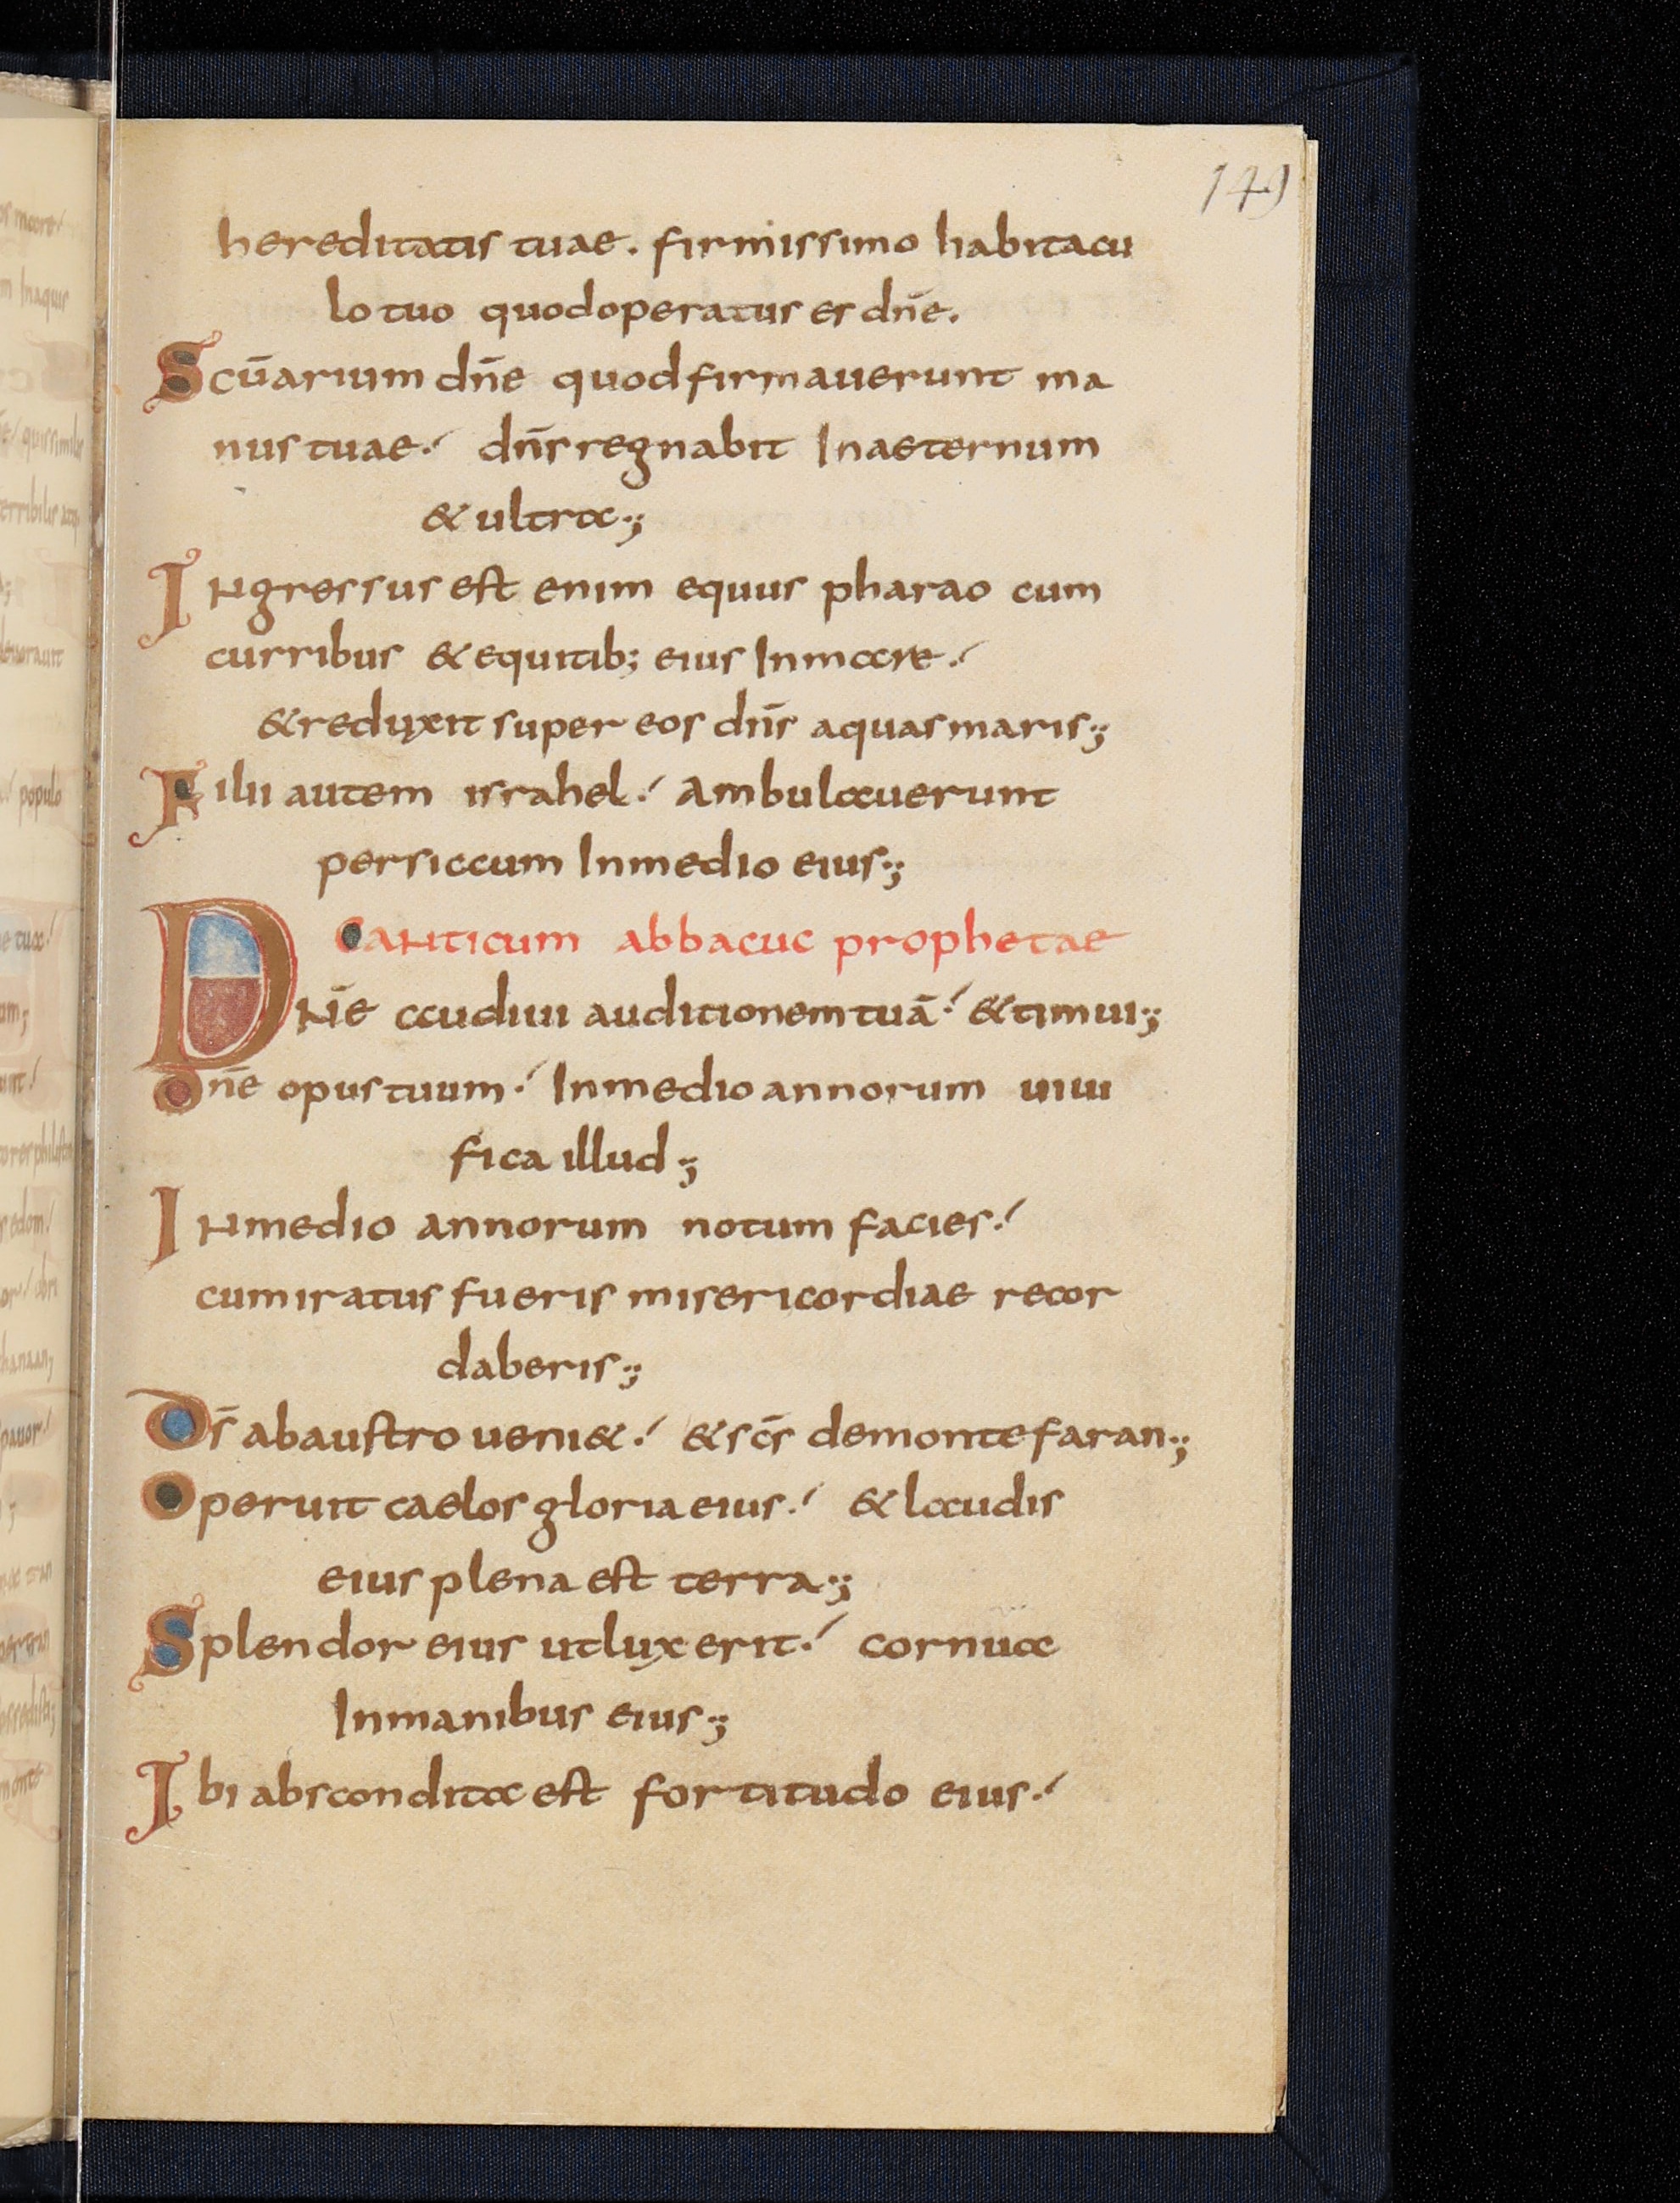 149
hereditatis tuae. firmissimo habitacu
lo tuo quod operatus es dn̄e.
Scūarium dn̄e quod firmauerunt ma
nus tuae. dn̄s regnabit Inaeternum
& ultra;
Ingressus est enim equus pharao cum
curribus & equitib; eius Inmare.
& reduxit super eos dn̄s aquas maris;
Filii autem israhel. Ambulauerunt
per siccum Inmedio eius;
Canticum abbacuc prophetae
Dn̄e audiui auditionem tuā. & timui;
Dn̄e opus tuum. Inmedio annorum uiui
fica illud;
Inmedio annorum notum facies.
cum iratus fueris misericordiae recor
daberis;
Ds̄ ab austro ueni&. & sc̄s de monte faran;
Operuit caelos gloria eius. & laudis
eius plena est terra;
Splendor eius ut lux erit. cornua
Inmanibus eius;
Ibi abscondita est fortitudo eius.